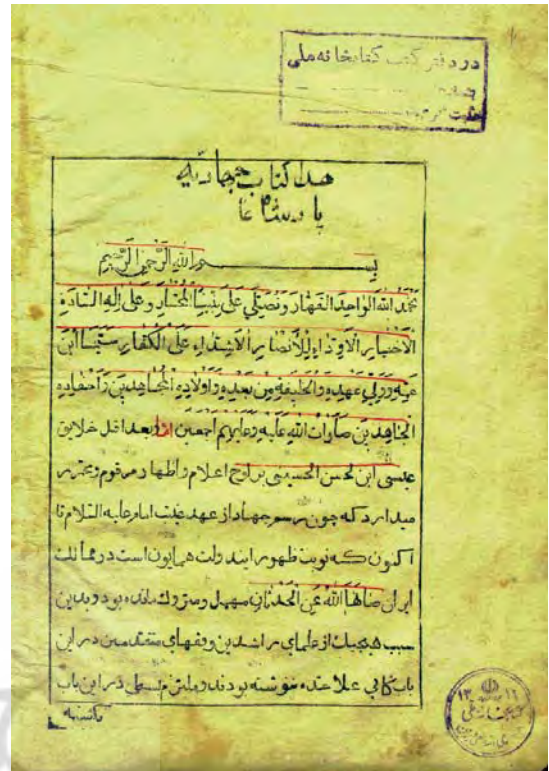 در دفتر کتب کتابخانه ملی
ثبت
هذا کتاب جهادیه
بسم الله الرحمن الرحیم
نحمد الله الواحد القهار و نصلی علی نبینا المختار و علی اله السادة
الاخیار الاوداء للانصار الاشداء علی الکفار سیما ابن
عمه و ولی عهده و الخلیفه من بعده و اولاده المجاهدین و احفاده
الجاهدین صلوات الله علیه و علیهم اجمعین اما بعد اقل خلایق
عیسی ابن الحسن الحسینی بر لوح اعلام و اظهار مرقوم و محرر
میدارد که چون رسم جهاد از عهد غیبت امام علیه السلام تا
اکنون که نوبت ظهور ایندولت همایون است در ممالک
ایران صانها الله عن الحدثان مهمل و متروک مانده بود و بدین
سبب هیچیک از علمای راشدین و فقهای متقدمین در این
باب کتابی علا حده ننوشته بودند و ملتزم بسطی در این باب